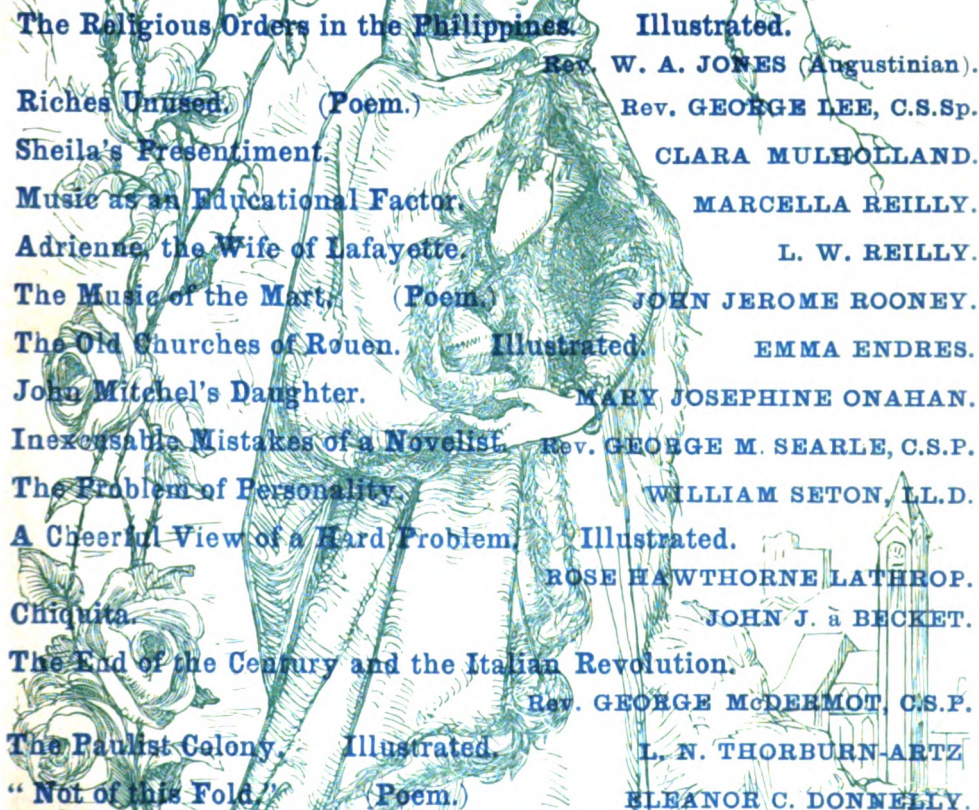 The Religious Orders in the Philippines. Illustrated.
Rev. W. A. JONES (Augustinian).
Riches Unused. (Poem.) Rev. GEORGE LEE, C.S.Sp.
Sheila's Presentiment. CLARA MULHOLLAND.
Music as an Educational Factor. MARCELLA REILLY.
Adrienne, the Wife of Lafayette. L. W. REILLY.
The Music of the Mart. (Poem.) JOHN JEROME ROONEY.
The Old Churches of Rouen. Illustrated. EMMA ENDRES.
John Mitchel's Daughter. MARY JOSEPHINE ONAHAN.
Inexcusable Mistakes of a Novelist. Rev. GEORGE M. SEARLE, C.S.P.
The Problem of Personality. WILLIAM SETON, LL.D.
A Cheerful View of a Hard Problem. Illustrated.
ROSE HAWTHORNE LATHROP.
Chiquita. JOHN J. à BECKET.
The End of the Century and the Italian Revolution.
Rev. GEORGE McDERMOT, C.S.P.
The Paulist Colony. Illustrated. L. N. THORBURN-ARTZ
"Not of this Fold." (Poem.) ELEANOR C. DONNELLY.